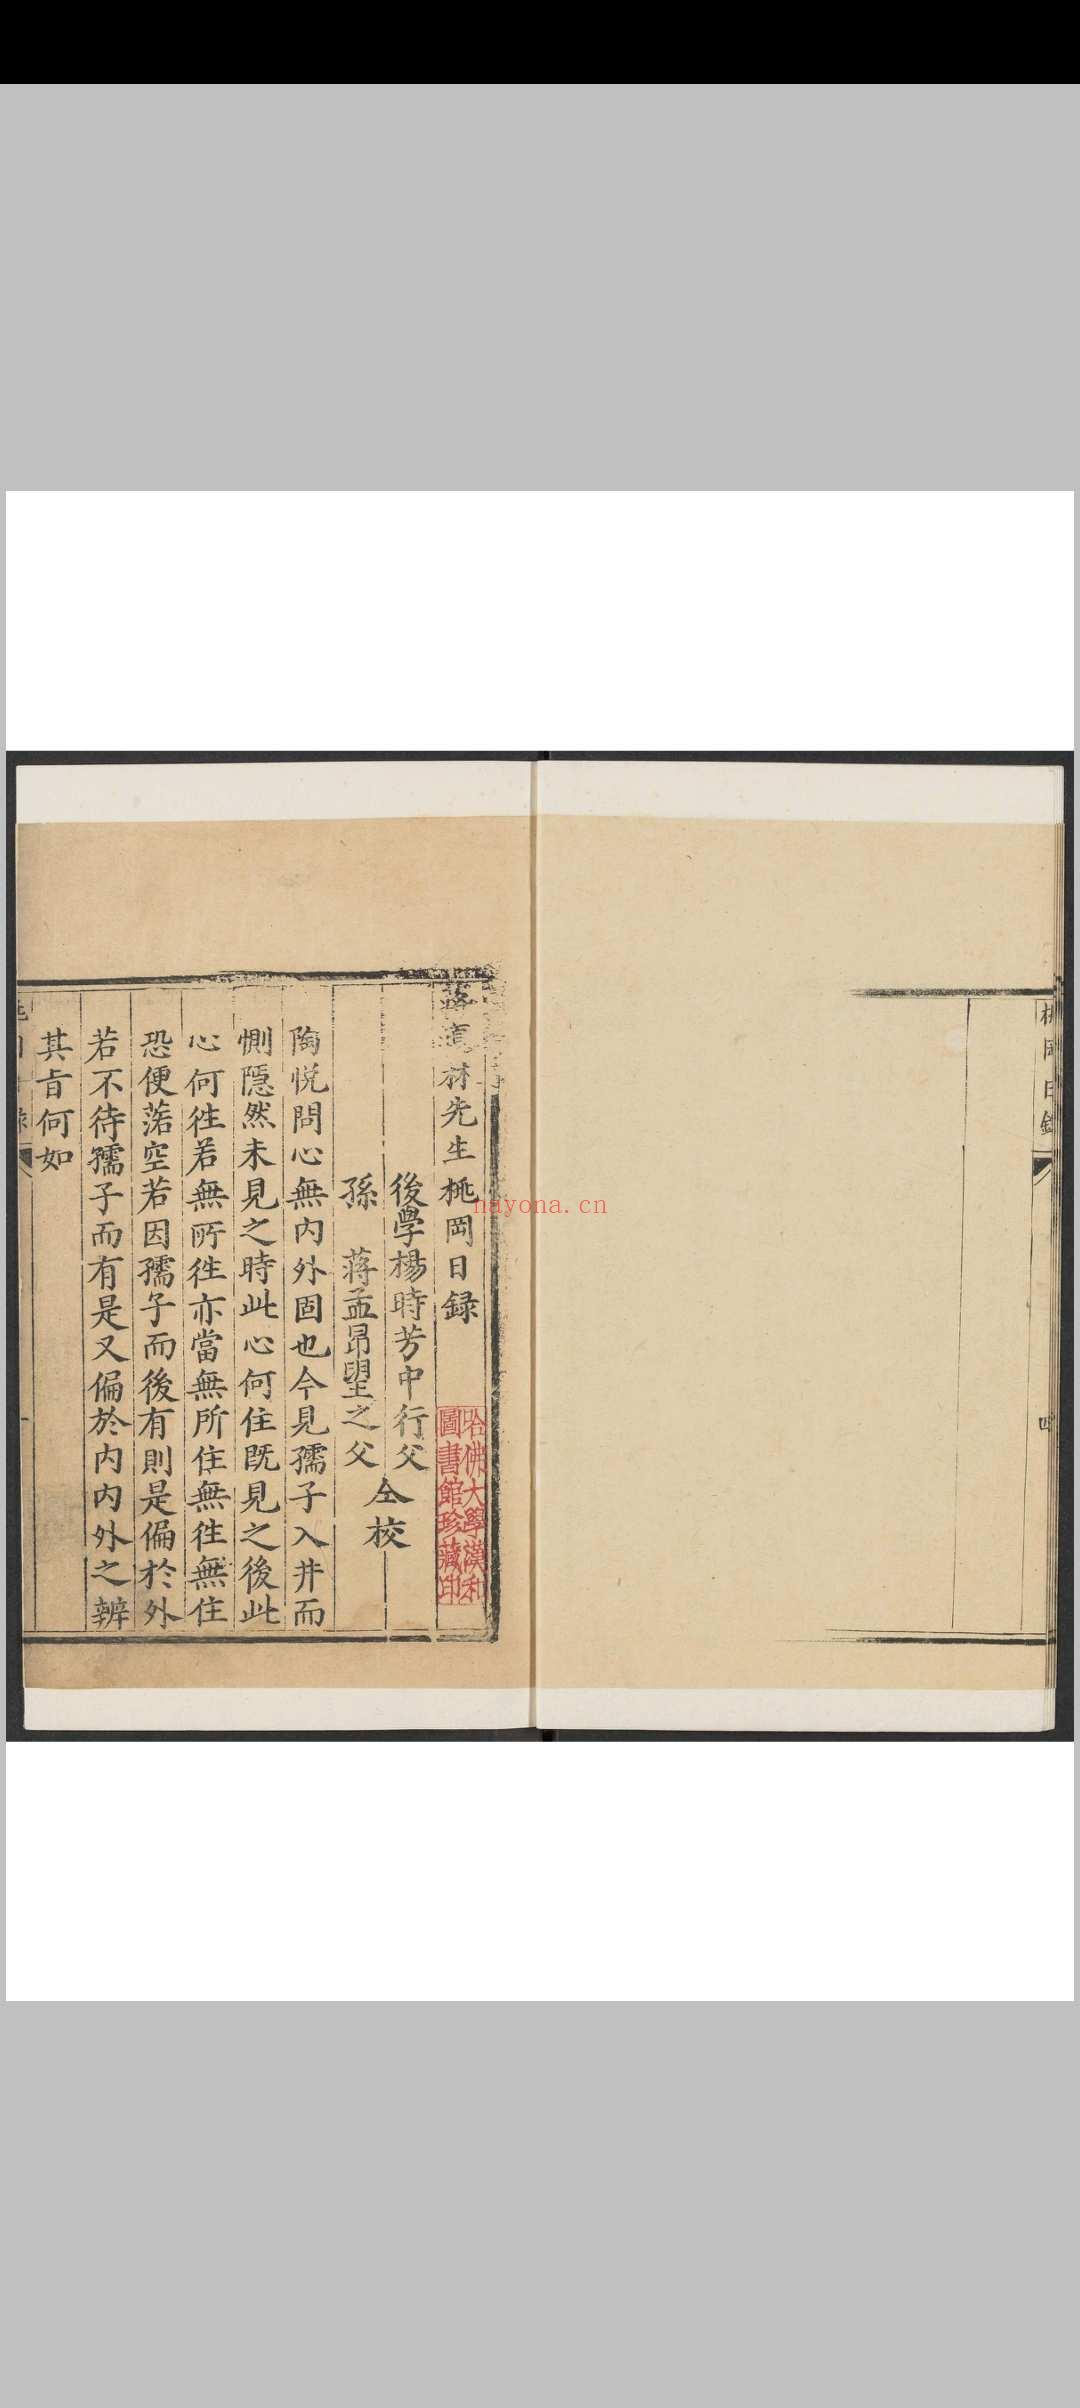 桃岡日錄
四
蔣道林先生桃岡日録
後學楊時芳中行父
孫 蔣孟昂望之父
仝校
哈佛大學漢和
圖書館珍藏印
陶悅問心無内外固也今見孺子入井而
惻隠然未見之時此心何住既見之後此
心何徃若無所徃亦當無所住無徃無住
恐便落空若因孺子而後有則是偏於外
若不待孺子而有是又偏於内内外之辨
其旨何如
nayona.cn